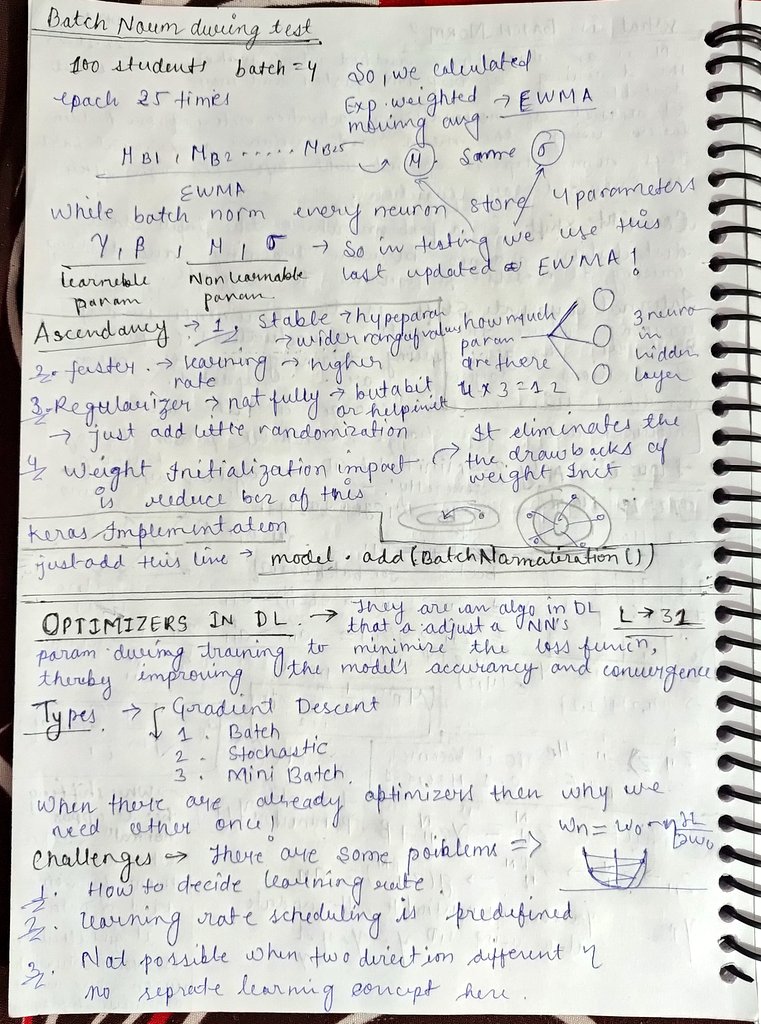 Batch Noum during test
100 students batch = 4
epach 25 times
So, we calculated
Exp. weighted → EWMA
moving avg
MB1, MB2 ..... MB25 → μ . Same σ
EWMA
While batch norm every neuron store 4 parameters
γ, β, μ, σ → So in testing we use this
last updated EWMA!
Learnable param
Non learnable param
Ascendancy → 1, Stable → hypeparam
→ wider range of values
2. faster. → learning rate → higher
3. Regularizer → not fully → but a bit
or help in it
→ just add little randomization
4 Weight Initialization impact
is reduce bcz of this
how much
param
are there
4 x 3 = 12
3 neuro
in
hidden
layer
It eliminates the
the drawbacks of
weight Init
Keras Implementation
just add this line → model.add(BatchNormalization())
OPTIMIZERS IN DL. → They are an algo in DL L → 31
that a adjust a NN's
param during training to minimize the loss funcn,
thereby improving the model's accurancy and convergence
Types → Gradient Descent
1. Batch
2. Stochastic
3. Mini Batch.
When there are already optimizers then why we
need other once!
Challenges → There are some poiblems => Wn = Wo - η ∂L/∂Wo
1. How to decide learning rate.
2. learning rate scheduling is predefined
3. Not possible when two direction different η
no seprate learning concept here.